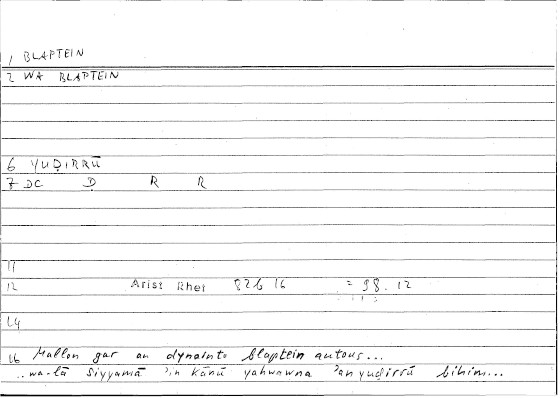 1 BLAPTEIN
2 WA BLAPTEIN
6 YUḌIRRŪ
7 DC Ḍ R R
11
12 Arist Rhet 82b 16 = 98.12
14
16 Mallon gar an dynainto blaptein autous...
..wa-lā siyyamā 'in kānū yahwawna 'an yuḍirrū bihim...